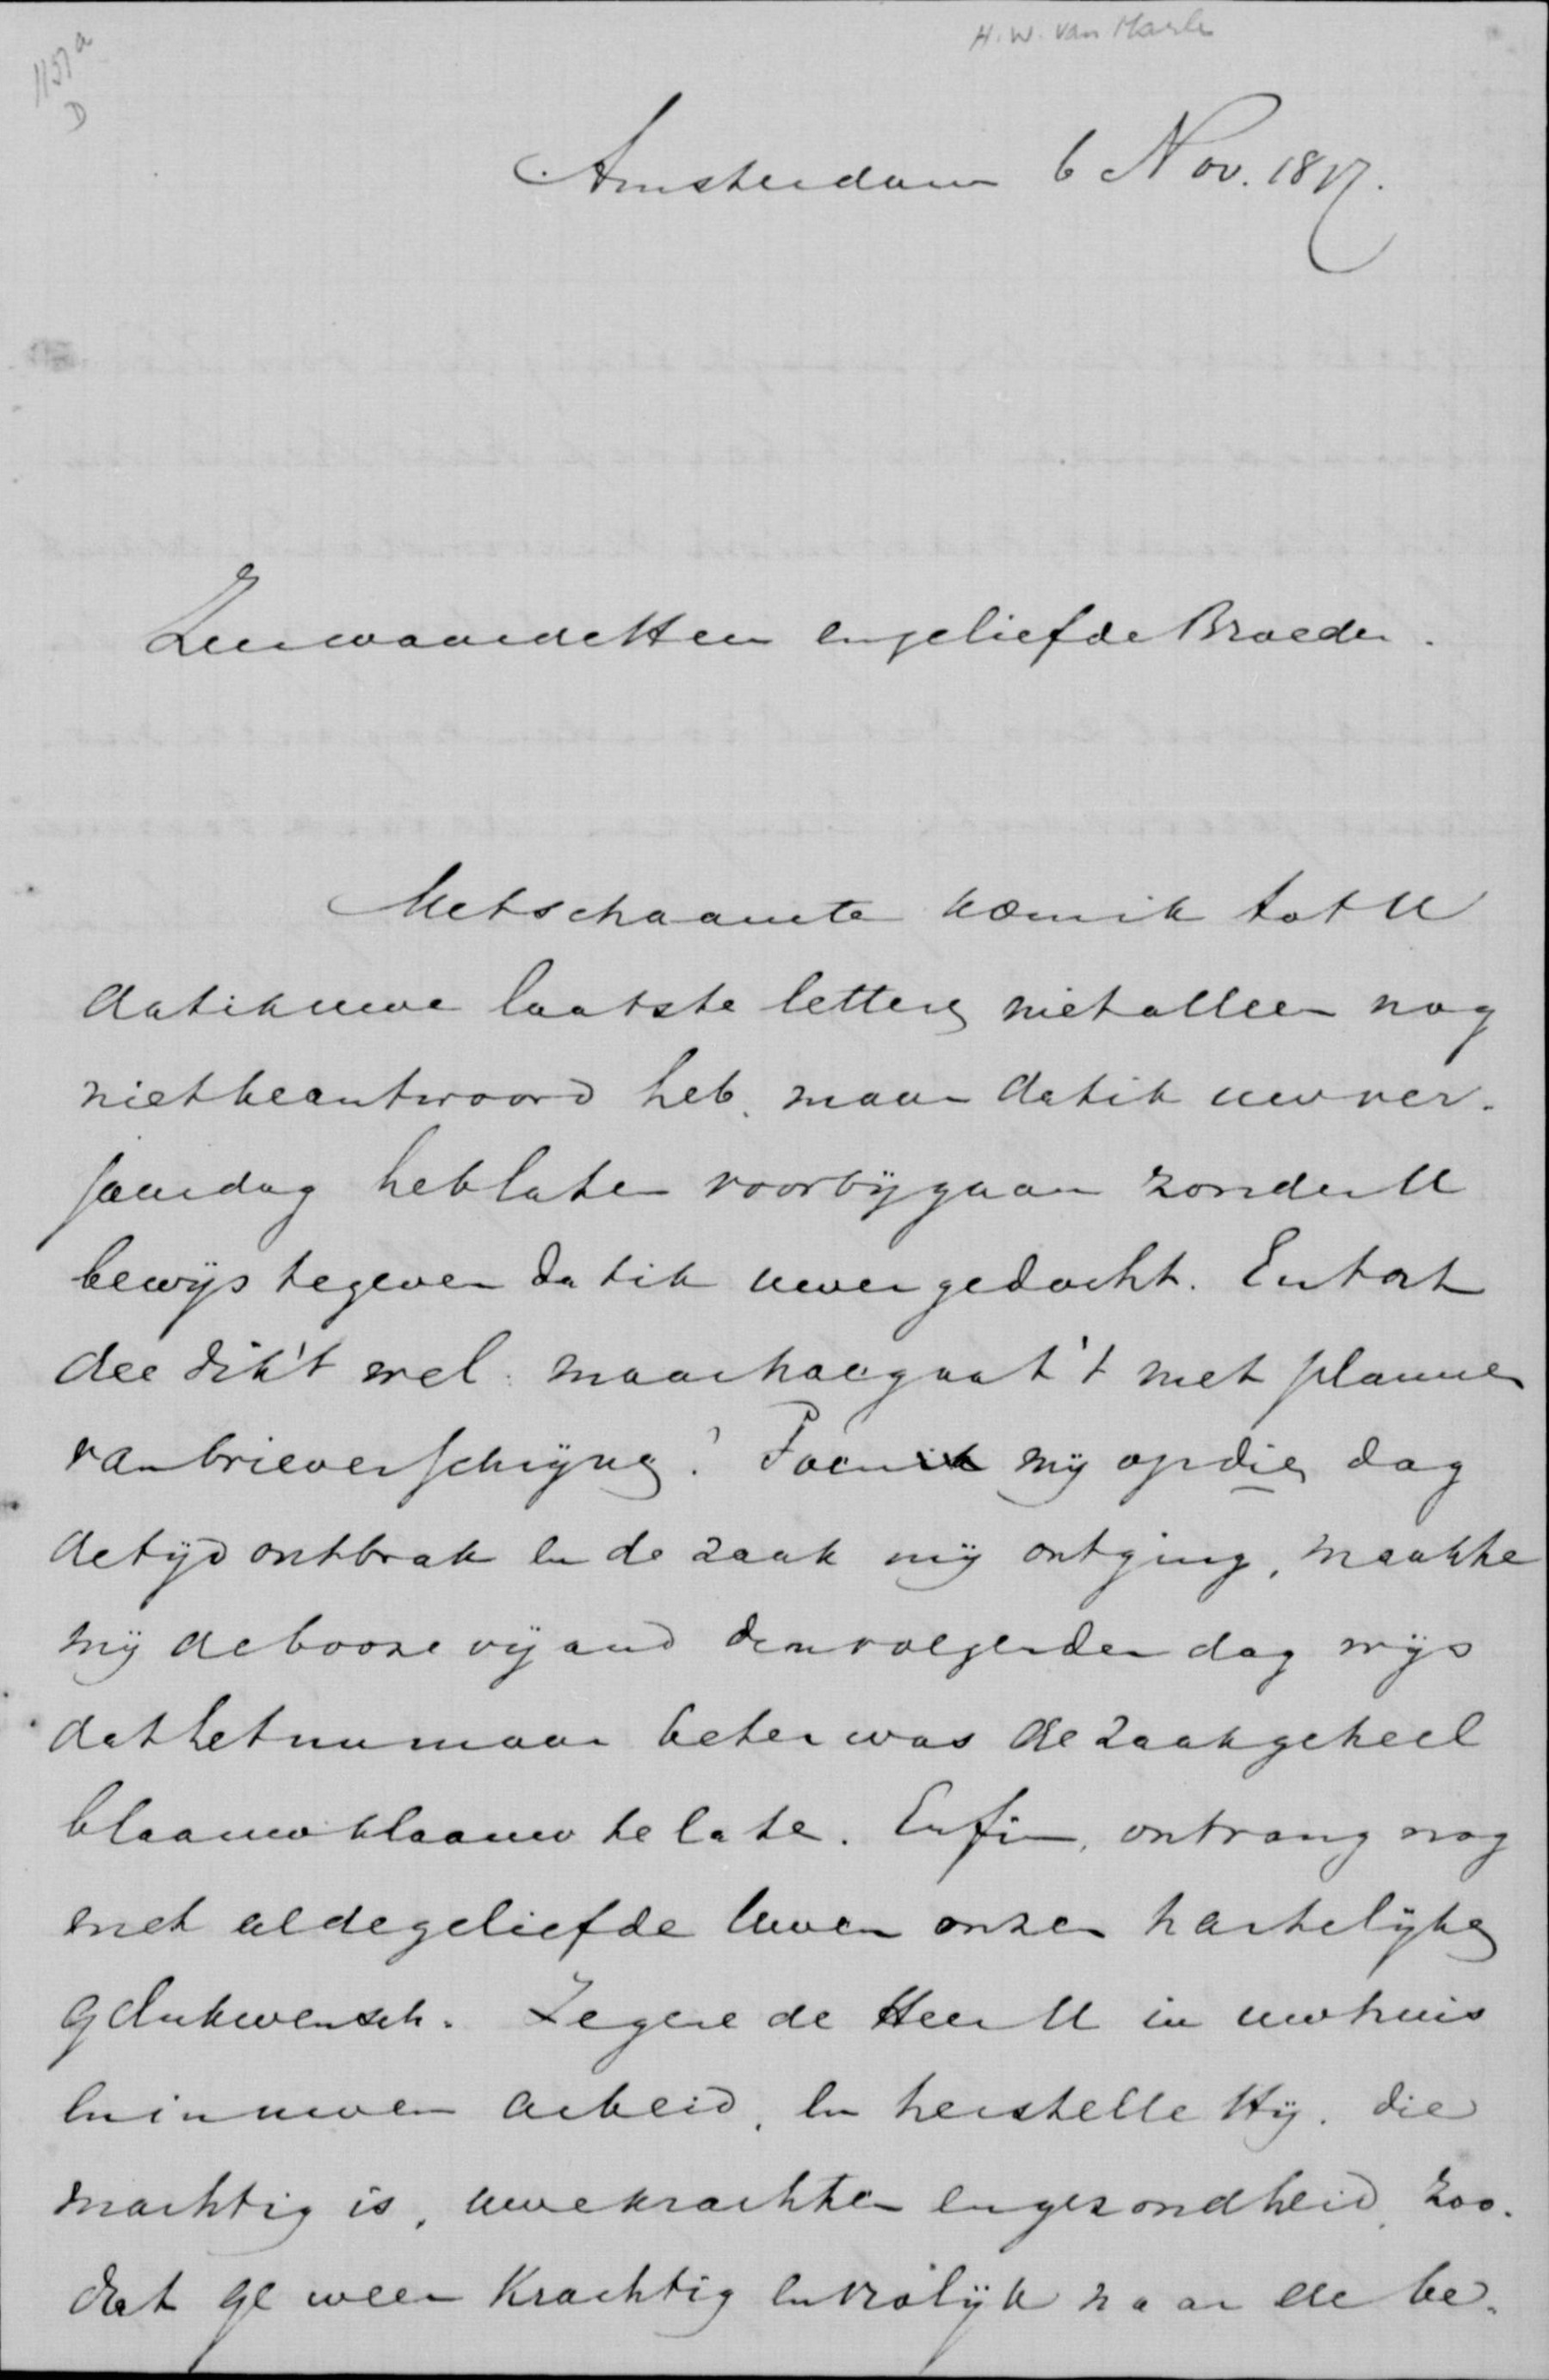 H. W. van Marle
1157a
D
Amsterdam 6 Nov. 1877.
Zeer waarde Heer en geliefde Broeder.
Met schaamte kom ik tot U
dat ik uwe laatste letteren niet alleen nog
niet beantwoord heb, maar dat ik uw ver-
jaardag heb laten voorbijgaan zonder U
bewijs te geven dat ik uwer gedacht. En toch
deed ik 't wel: maar hoe gaat 't met plannen
van brievenschrijven? Toen mij op dien dag
de tijd ontbrak en de zaak mij ontging, maakte
mij de booze vijand den volgenden dag wijs
dat het nu maar beter was de zaak geheel
blaauw blaauw te laten. Enfin, ontvang nog
met al de geliefde Uwen onzen hartelijken
gelukwensch. Zegene de Heer U in uw huis
en in uwen arbeid, en herstelle Hij, die
machtig is, uwe krachten en gezondheid, zoo-
dat ge weer krachtig en vrolijk naar de be-